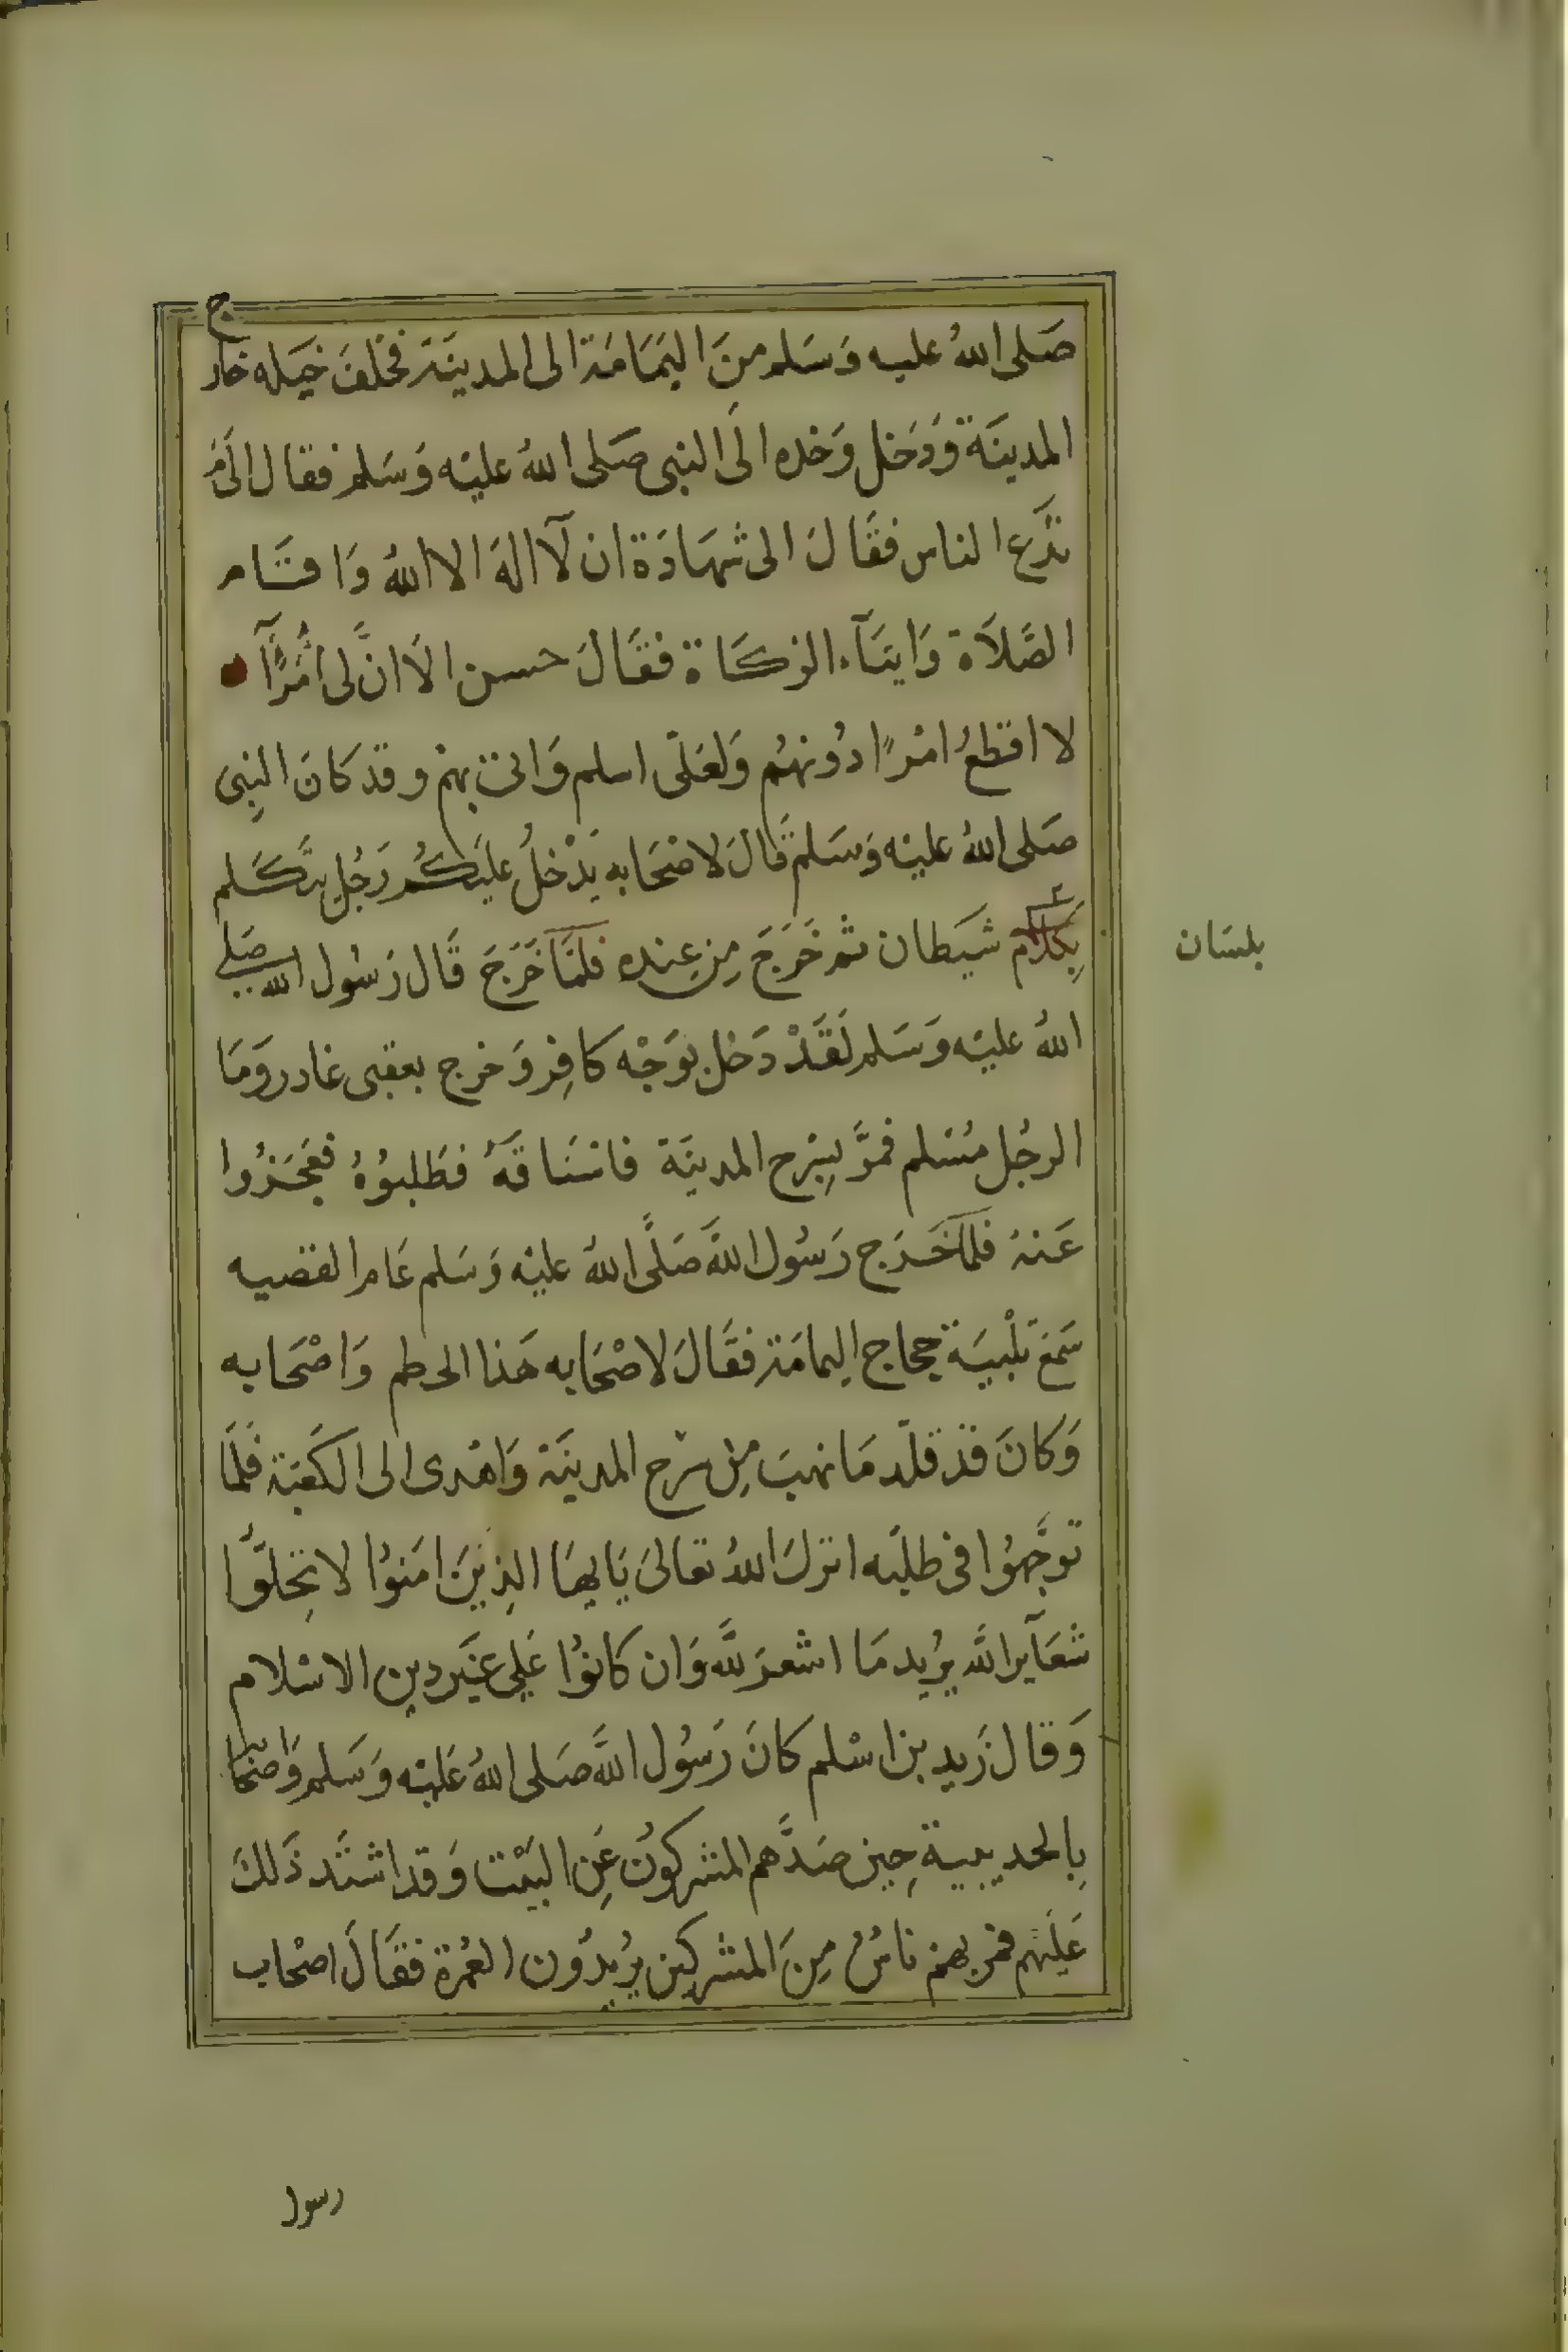 صَلى اللهُ عليه وَسَلم منَ اليَمَامَة الى المدينَة فخلفَ خيَله خارج
المدينَة وَدَخل وَحْده الَى النبى صَلى اللهُ عليْه وَسَلم فقال الَىمَ
تدْع الناس فقَالَ الى شهَادَة ان لآاله الا اللهُ وَاقَام
الصَّلَاة وَايتَآء الزكَاة فقَالَ حسن الَا انَّ لى امُرَآ
لا اقطعُ امْرًا دُونهُم وَلعَلى اسلم وَاتى بهمْ وقد كانَ النبِى
صَلى اللهُ عليْه وَسَلم قَالَ لاصْحَابه يَدْخلُ عليَكُم رَجُل يتَكَلم
بِكلام شيَطان ثم خَرَجَ مِن عِنده فلمَّا خَرَجَ قَال رَسُول الله صَلى
اللهُ عليْه وَسَلم لَقَدْ دَخل بوَجْه كافِر وَخرج بعقبى غادر وَمَا
الرجُل مُسْلم فمرَّ بِسَرْح المدينَة فاسْتَاقَهُ فطَلبوُهُ فعَجَزُوا
عَنهُ فلما خَرَج رَسُول اللَّه صَلَّى اللهُ عليْه وَسَلم عَام القضيه
سَمعَ تلْبيَة حجاج اليمامَة فقَالَ لاصْحَابه هَذا الحطم وَاصْحَابه
وَكانَ قدْ قلّد مَا نهبَ مِن سَرْح المدينَة وَاهْدى الى الكَعْبَة فلَمَا
توَجَّهوُا فى طلبَه انزلَ اللهُ تعَالىَ يَايهَا الذِينَ امَنوُا لا تحِلُّوا
شعَآئر اللَّه يُريد مَا اشعرَ للَّه وَان كانوُا عَلى غيَر دين الاسْلام
وَقال زَيد بن اسْلم كانَ رَسُول اللَّه صَلى اللهُ عَليْه وَسَلم وَاصْحَابه
بِالحديبية حِين صَدَّهم المشركوُن عَن البيَت وَقد اشتَد ذَلكَ
عَليْهم فمر بهم ناسُ مِنَ المشركين يُريدُون العُمرة فقَالَ اصْحاب
بلسَان
رسول